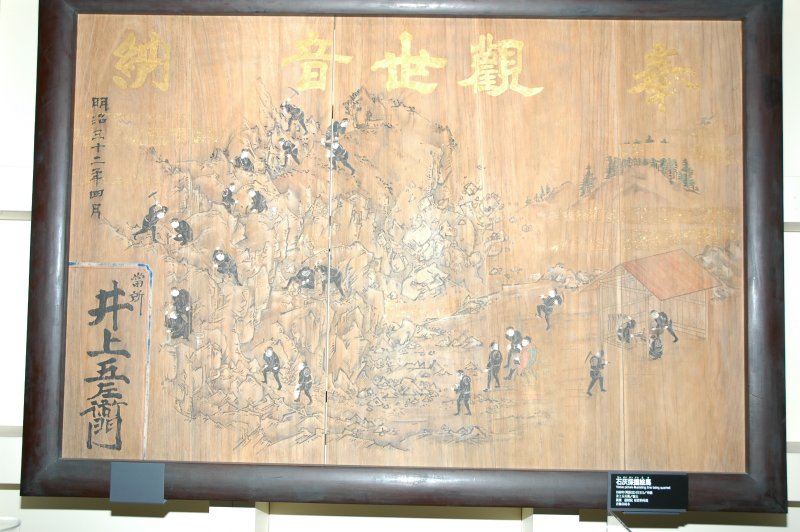 奉 觀世音 納
明治三十二年四月
當所
井上五左衛門
石灰採掘絵馬
Votive picture illustrating lime being quarried